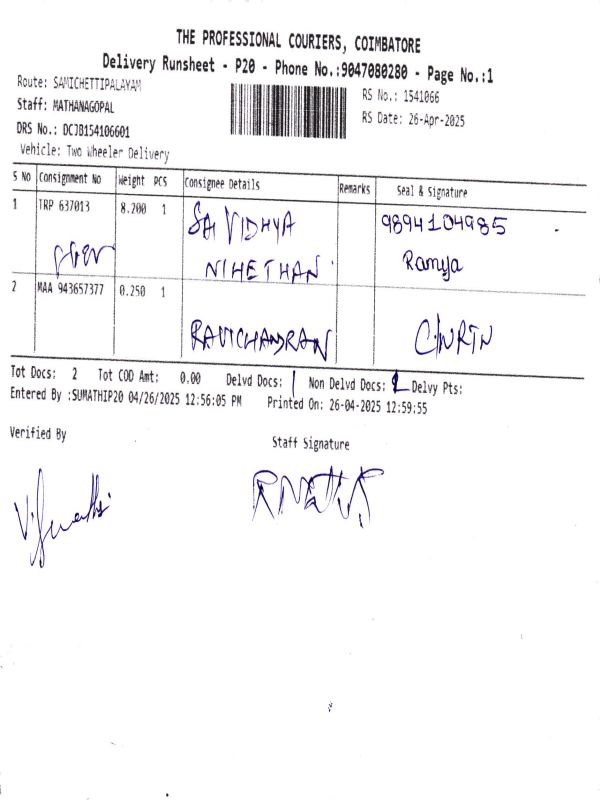 THE PROFESSIONAL COURIERS, COIMBATORE
Delivery Runsheet - P20 - Phone No.:9047080280 - Page No.:1
Route: SAMICHETTIPALAYAM
RS No.: 1541066
Staff: MATHANAGOPAL
RS Date: 26-Apr-2025
DRS No.: DCJB154106601
Vehicle: Two Wheeler Delivery
S No Consignment No Weight PCS Consignee Details Remarks Seal & Signature
1 TRP 637013 8.200 1 SAI VIDHYA 9894104985
NIHETHAN Ramya
2 MAA 943657377 0.250 1
RAVICHANDRAN
Tot Docs: 2 Tot COD Amt: 0.00 Delvd Docs: 1 Non Delvd Docs: Delvy Pts:
Entered By :SUMATHIP20 04/26/2025 12:56:05 PM Printed On: 26-04-2025 12:59:55
Verified By
Staff Signature